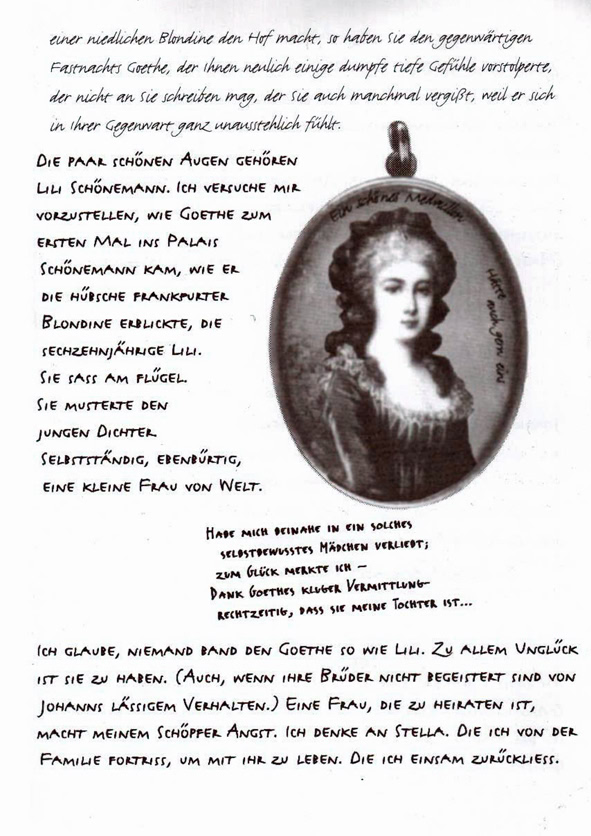 einer niedlichen Blondine den Hof macht, so haben Sie den gegenwärtigen
Fastnachts Goethe, der Ihnen neulich einige dumpfe tiefe Gefühle vorstolperte,
der nicht an Sie schreiben mag, der Sie auch manchmal vergißt, weil er sich
in Ihrer Gegenwart ganz unausstehlich fühlt.
Die paar schönen Augen gehören
Lili Schönemann. Ich versuche mir
vorzustellen, wie Goethe zum
ersten Mal ins Palais
Schönemann kam, wie er
die hübsche Frankfurter
Blondine erblickte, die
sechzehnjährige Lili.
Sie sass am Flügel.
Sie musterte den
jungen Dichter
selbstständig, ebenbürtig,
eine kleine Frau von Welt.
Ein schönes Medaillon
Hätte auch gern ein
Habe mich beinahe in ein solches
selbstbewusstes Mädchen verliebt;
zum Glück merkte ich –
Dank Goethes kluger Vermittlung–
rechtzeitig, dass sie meine Tochter ist...
Ich glaube, niemand band den Goethe so wie Lili. Zu allem Unglück
ist sie zu haben. (Auch, wenn ihre Brüder nicht begeistert sind von
Johanns lässigem Verhalten.) Eine Frau, die zu heiraten ist,
macht meinem Schöpfer Angst. Ich denke an Stella. Die ich von der
Familie fortriss, um mit ihr zu leben. Die ich einsam zurückliess.